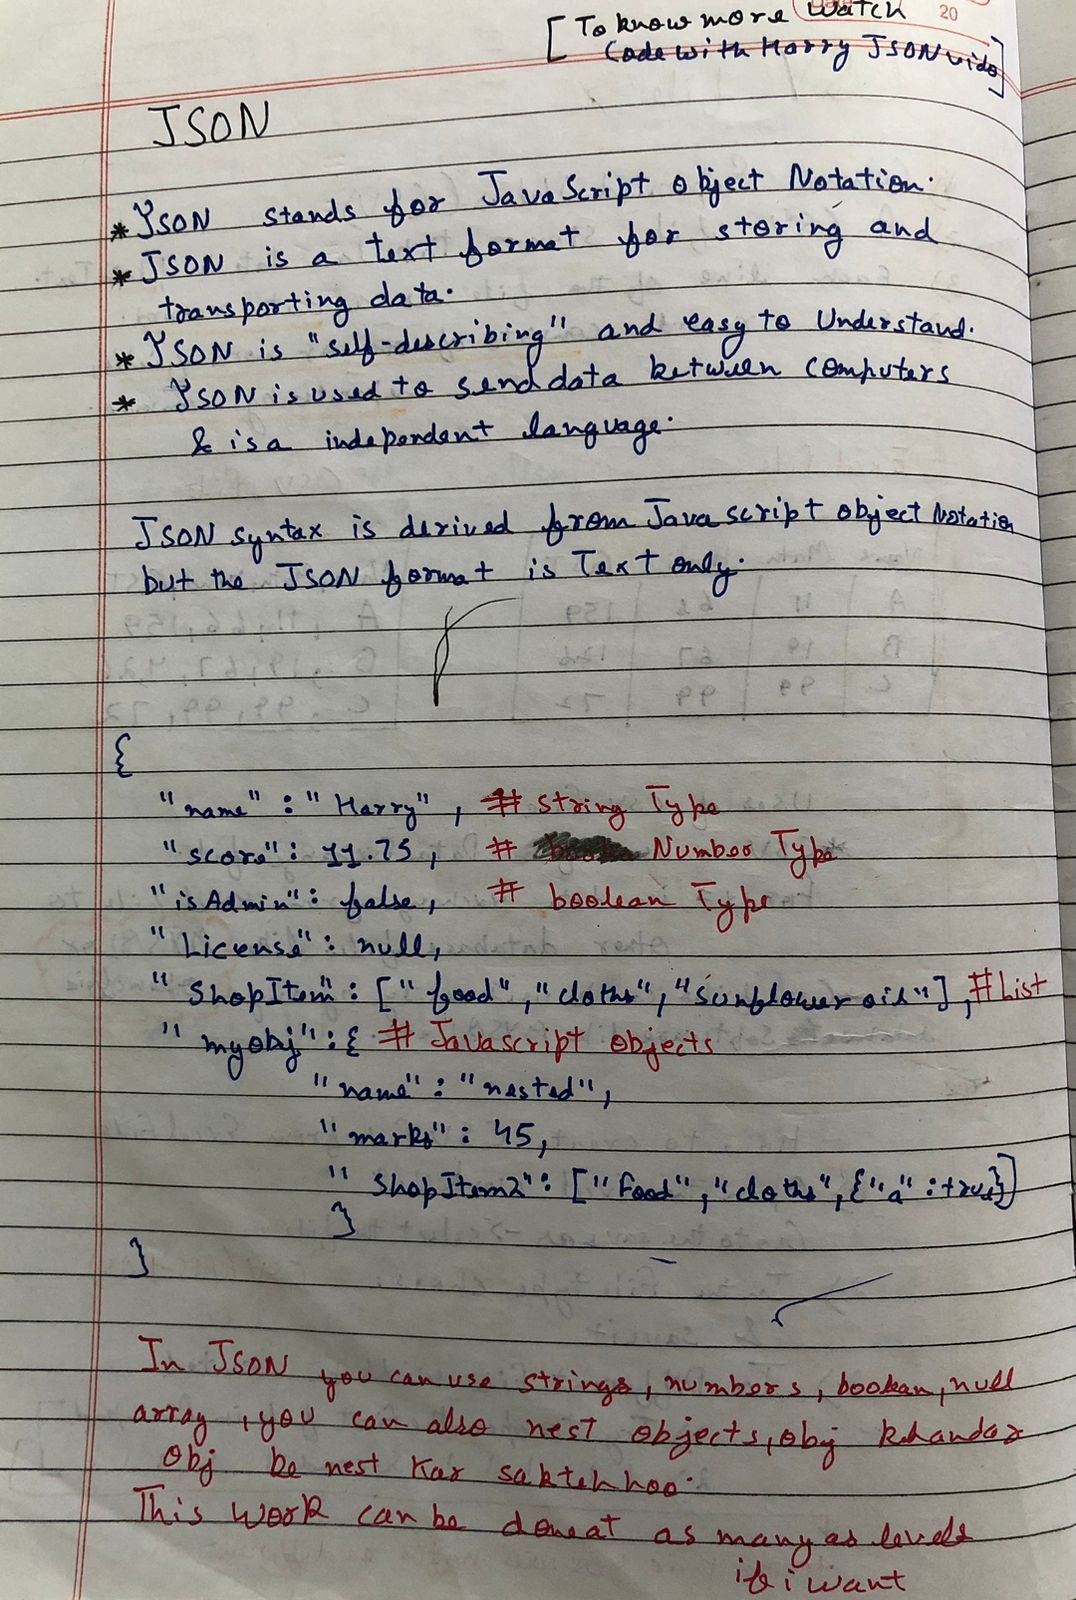 20
[To know more watch
Code with Harry JSON vido]
JSON
* JSON stands for JavaScript Object Notation.
* JSON is a text format for storing and
transporting data.
* JSON is "self-describing" and easy to Understand.
* JSON is used to send data between computers
& is a independent language.
JSON syntax is derived from Java script object Notation
but the JSON format is Text only.
{
"name" : "Harry", # string Type
"score" : 11.75, # Number Type
"isAdmin" : false, # boolean Type
"License" : null,
"ShopItem" : ["food", "cloths", "sunflower oil"], #List
"myobj" : { # Javascript objects
"name" : "nested",
"marks" : 45,
"ShopItem2" : ["food", "cloths", {"a" : true}]
}
}
In JSON you can use strings, numbers, boolean, null
array, you can also nest objects, obj k handar
obj ke nest kar sakteh hoo.
This work can be done at as many as levels
if i want